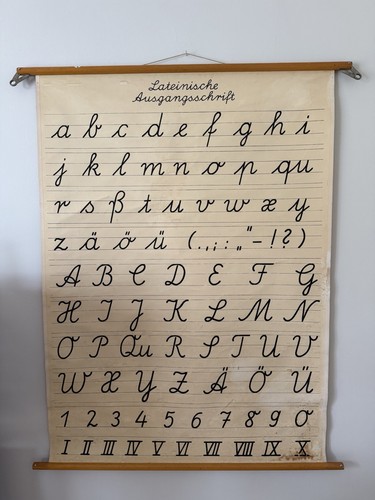 Lateinische
Ausgangsschrift
a b c d e f g h i
j k l m n o p qu
r s ß t u v w x y
z ä ö ü (.,;:„"–!?)
A B C D E F G
H I J K L M N
O P Qu R S T U V
W X Y Z Ä Ö Ü
1 2 3 4 5 6 7 8 9 0
I II III IV V VI VII VIII IX X